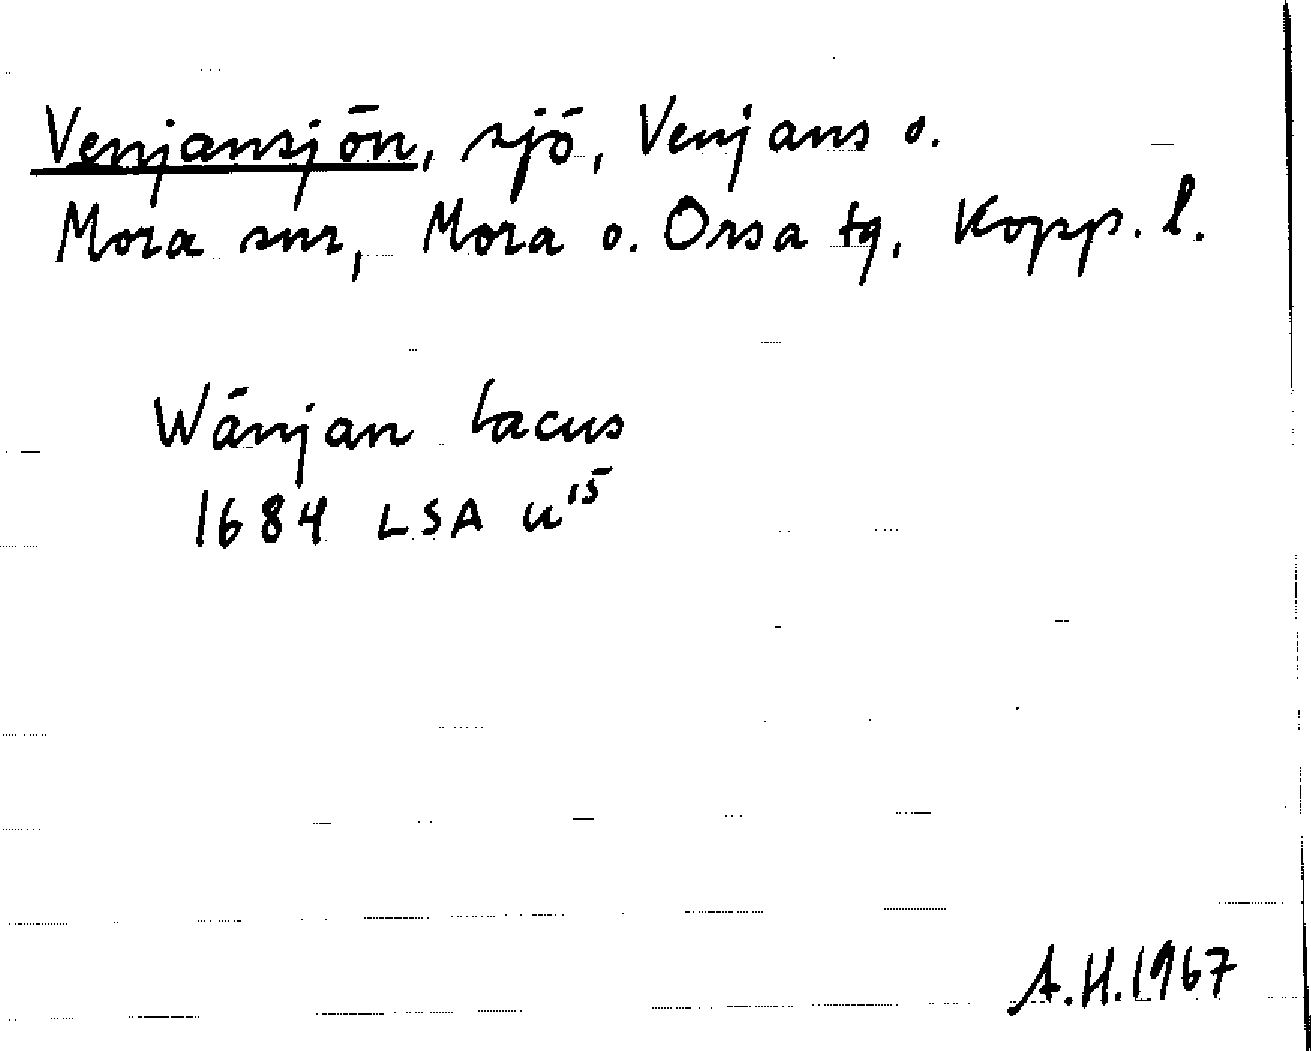 Venjansjön, sjö, Venjans o.
Mora snr, Mora o. Orsa tg, Kopp. l.
Wänjan Lacus
1684 LSA u¹⁵
A.H. 1967